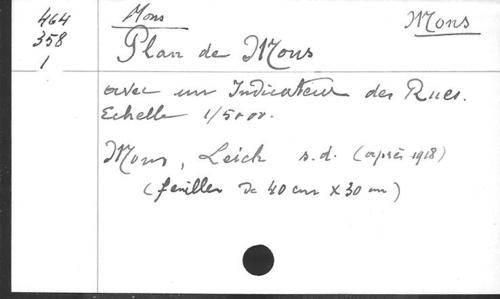 464
358
1
Mons
Mons
Plan de Mons
avec un Indicateur des Rues.
Echelle 1/5000.
Mons, Leick s.d. (après 1918)
(feuillet de 40 cm x 30 cm)